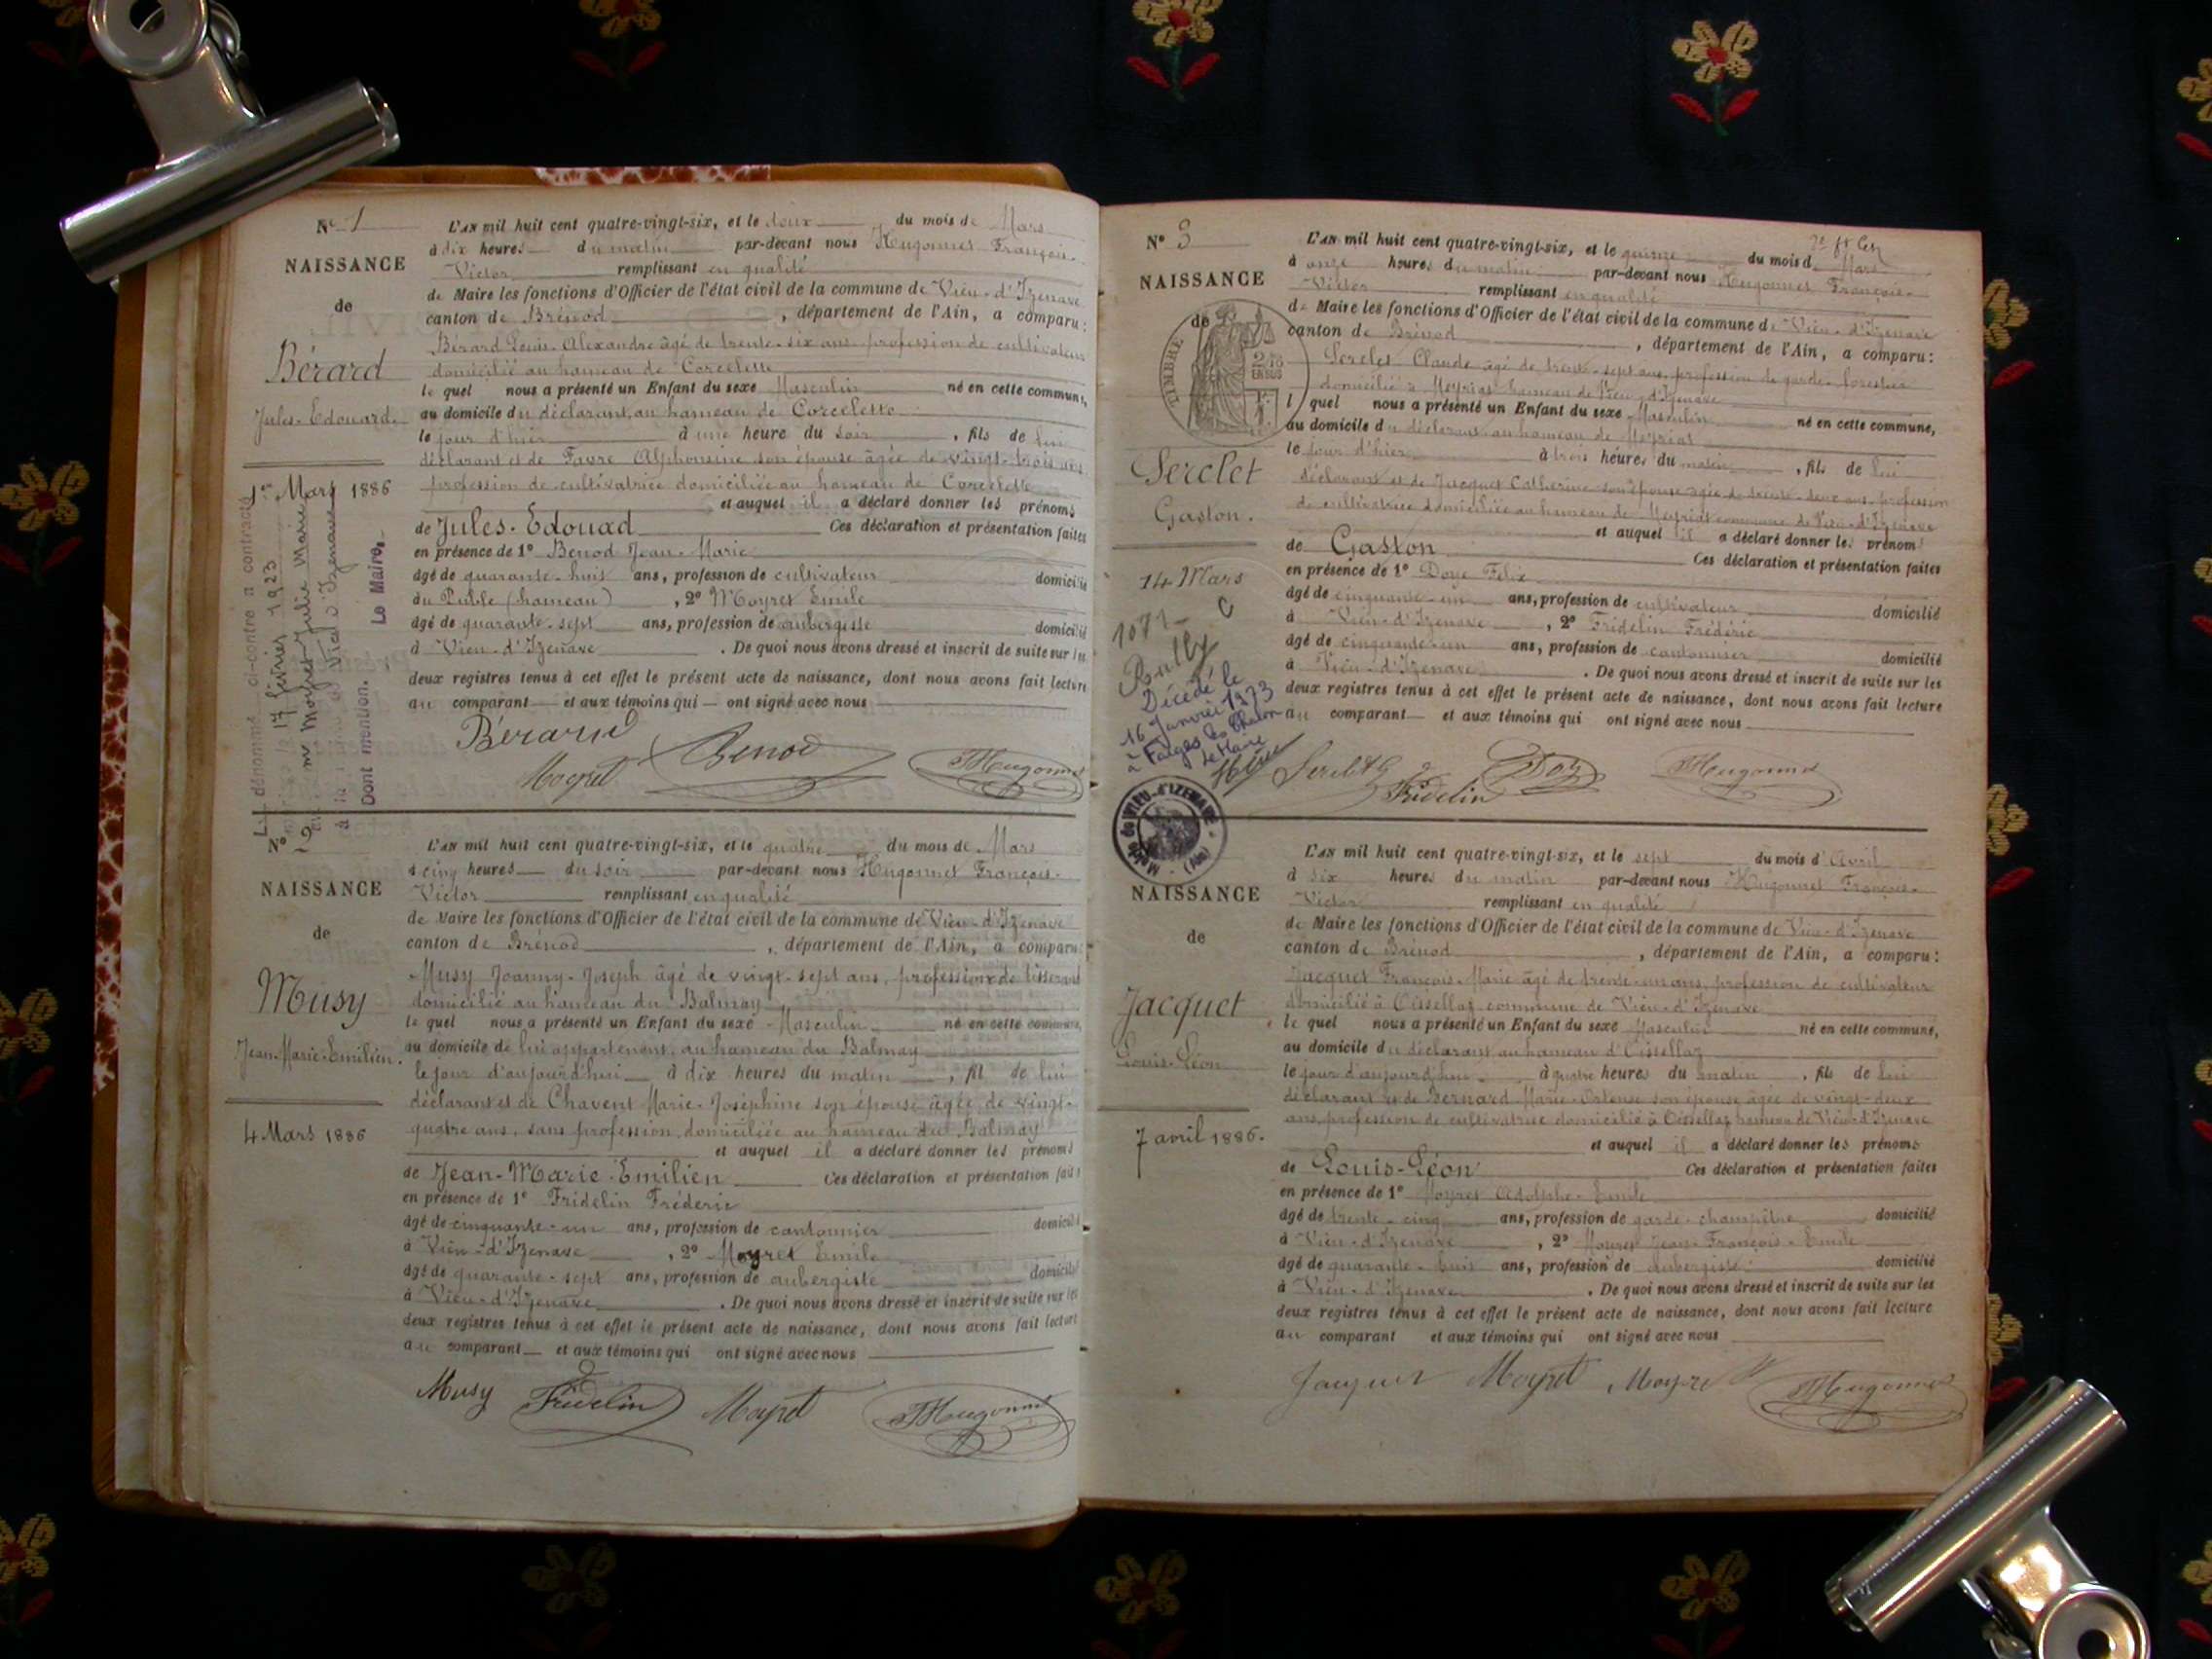 N° 1
NAISSANCE
de
Bérard
Jules-Edouard.
1er Mars 1886
L dénommé ci-contre a contracté
17 février 1923
Moyret Julie Marie
Vieu d'Izenave
Dont mention. Le Maire,
L'AN mil huit cent quatre-vingt-six, et le deux du mois de Mars
à dix heures du matin par-devant nous Hugonnet François-
Victor remplissant en qualité
de Maire les fonctions d'Officier de l'état civil de la commune de Vieu-d'Izenave
canton de Brénod, département de l'Ain, a comparu:
Bérard Louis-Alexandre âgé de trente-six ans profession de cultivateur
domicilié au hameau de Corcelette
le quel nous a présenté un Enfant du sexe Masculin né en cette commune,
au domicile du déclarant, au hameau de Corcelette
le jour d'hier à une heure du soir, fils de lui
déclarant et de Favre Alphonsine son épouse âgée de vingt-trois ans
profession de cultivatrice domiciliée au hameau de Corcelette
et auquel il a déclaré donner les prénoms
de Jules-Edouad Ces déclaration et présentation faites
en présence de 1° Benod Jean-Marie
âgé de quarante-huit ans, profession de cultivateur domicilié
au Puble (hameau), 2° Moyret Emile
âgé de quarante-sept ans, profession de aubergiste domicilié
à Vieu-d'Izenave. De quoi nous avons dressé et inscrit de suite sur les
deux registres tenus à cet effet le présent acte de naissance, dont nous avons fait lecture
au comparant et aux témoins qui ont signé avec nous
Bérard
Moyret Benod Hugonnet
N° 2
NAISSANCE
de
Musy
Jean-Marie-Emilien.
4 Mars 1886
L'AN mil huit cent quatre-vingt-six, et le quatre du mois de Mars
à cinq heures du soir par-devant nous Hugonnet François-
Victor remplissant en qualité
de Maire les fonctions d'Officier de l'état civil de la commune de Vieu-d'Izenave
canton de Brénod, département de l'Ain, a comparu:
Musy Joanny-Joseph âgé de vingt-sept ans, profession de tisserand
domicilié au hameau du Balmay
le quel nous a présenté un Enfant du sexe Masculin né en cette commune,
au domicile de lui appartenant, au hameau du Balmay
le jour d'aujourd'hui à dix heures du matin, fil de lui
déclarant et de Chavent Marie-Joséphine son épouse âgée de vingt-
quatre ans, sans profession, domiciliée au hameau du Balmay
et auquel il a déclaré donner les prénoms
de Jean-Marie-Emilien Ces déclaration et présentation faites
en présence de 1° Fridelin Fréderic
âgé de cinquante-un ans, profession de cantonnier domicilié
à Vieu-d'Izenave, 2° Moyret Emile
âgé de quarante-sept ans, profession de aubergiste domicilié
à Vieu-d'Izenave. De quoi nous avons dressé et inscrit de suite sur les
deux registres tenus à cet effet le présent acte de naissance, dont nous avons fait lecture
au comparant et aux témoins qui ont signé avec nous
Musy Fridelin Moyret Hugonnet
N° 3
NAISSANCE
de
TIMBRE
Serclet
Gaston.
14 Mars
Décédé le
16 Janvier 1973
à Farges les Chalon
Le Maire
Mairie de VIEU-d'IZENAVE (Ain)
L'AN mil huit cent quatre-vingt-six, et le quinze du mois d Mars
à onze heures du matin par-devant nous Hugonnet François-
Victor remplissant en qualité
de Maire les fonctions d'Officier de l'état civil de la commune de Vieu-d'Izenave
canton de Brénod, département de l'Ain, a comparu:
Serclet Claude âgé de trente-sept ans, profession de garde-forestier
domicilié à Meyriat hameau de Vieu-d'Izenave
l quel nous a présenté un Enfant du sexe Masculin né en cette commune,
au domicile du déclarant au hameau de Meyriat
le jour d'hier à trois heures du matin, fils de lui
déclarant et de Jacquet Catherine son épouse âgée de trente-deux ans, profession
de cultivatrice domiciliée au hameau de Meyriat commune de Vieu-d'Izenave
et auquel il a déclaré donner le prénom
de Gaston Ces déclaration et présentation faites
en présence de 1° Doye Félix
âgé de cinquante-un ans, profession de cultivateur domicilié
à Vieu-d'Izenave, 2° Fridelin Frédéric
âgé de cinquante-un ans, profession de cantonnier domicilié
à Vieu-d'Izenave. De quoi nous avons dressé et inscrit de suite sur les
deux registres tenus à cet effet le présent acte de naissance, dont nous avons fait lecture
au comparant et aux témoins qui ont signé avec nous
Fridelin Hugonnet
NAISSANCE
de
Jacquet
Louis-Léon
7 avril 1886.
L'AN mil huit cent quatre-vingt-six, et le sept du mois d'Avril
à six heures du matin par-devant nous Hugonnet François-
Victor remplissant en qualité
de Maire les fonctions d'Officier de l'état civil de la commune de Vieu-d'Izenave
canton de Brénod, département de l'Ain, a comparu:
Jacquet François-Marie âgé de trente-un ans, profession de cultivateur
domicilié à Oissellaz commune de Vieu-d'Izenave
le quel nous a présenté un Enfant du sexe Masculin né en cette commune,
au domicile du déclarant au hameau d'Oissellaz
le jour d'aujourd'hui à quatre heures du matin, fils de lui
déclarant et de Bernard Marie-Ortense son épouse âgée de vingt-deux
ans, profession de cultivatrice domicilié à Oissellaz hameau de Vieu-d'Izenave
et auquel il a déclaré donner les prénoms
de Louis-Léon Ces déclaration et présentation faites
en présence de 1° Moyret Adolphe-Emile
âgé de trente-cinq ans, profession de garde-champêtre domicilié
à Vieu-d'Izenave, 2° Moyret Jean-François-Emile
âgé de quarante-huit ans, profession de aubergiste domicilié
à Vieu-d'Izenave. De quoi nous avons dressé et inscrit de suite sur les
deux registres tenus à cet effet le présent acte de naissance, dont nous avons fait lecture
au comparant et aux témoins qui ont signé avec nous
Jacquet Moyret Moyret Hugonnet